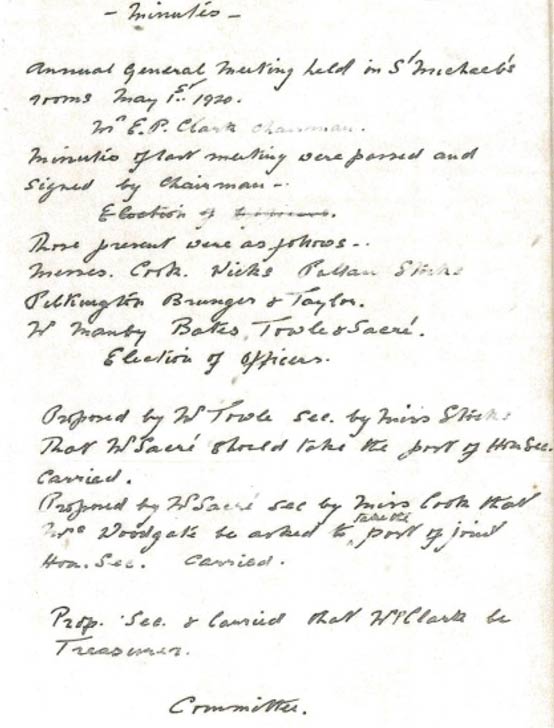 - Minutes -
Annual General Meeting held in St Michael's
rooms May 1st 1920.
Mr E.P. Clark Chairman.
Minutes of last meeting were passed and
signed by Chairman -
Election of
Those present were as follows -
Messes. Cook. Hicks Stocks
Pilkington Brunger & Taylor.
Mr Manby Bates, Towle & Sacré.
Election of Officers.
Proposed by Mr Towle Sec. by Miss Stocks
That Mr Sacré should take the post of Hon Sec.
Carried.
Proposed by Mr Sacré sec by Miss Cook that
Mrs Woodgate be asked to take the post of joint
Hon. Sec. Carried.
Prop. Sec. & Carried that Mr Clark be
Treasurer.
Committee.